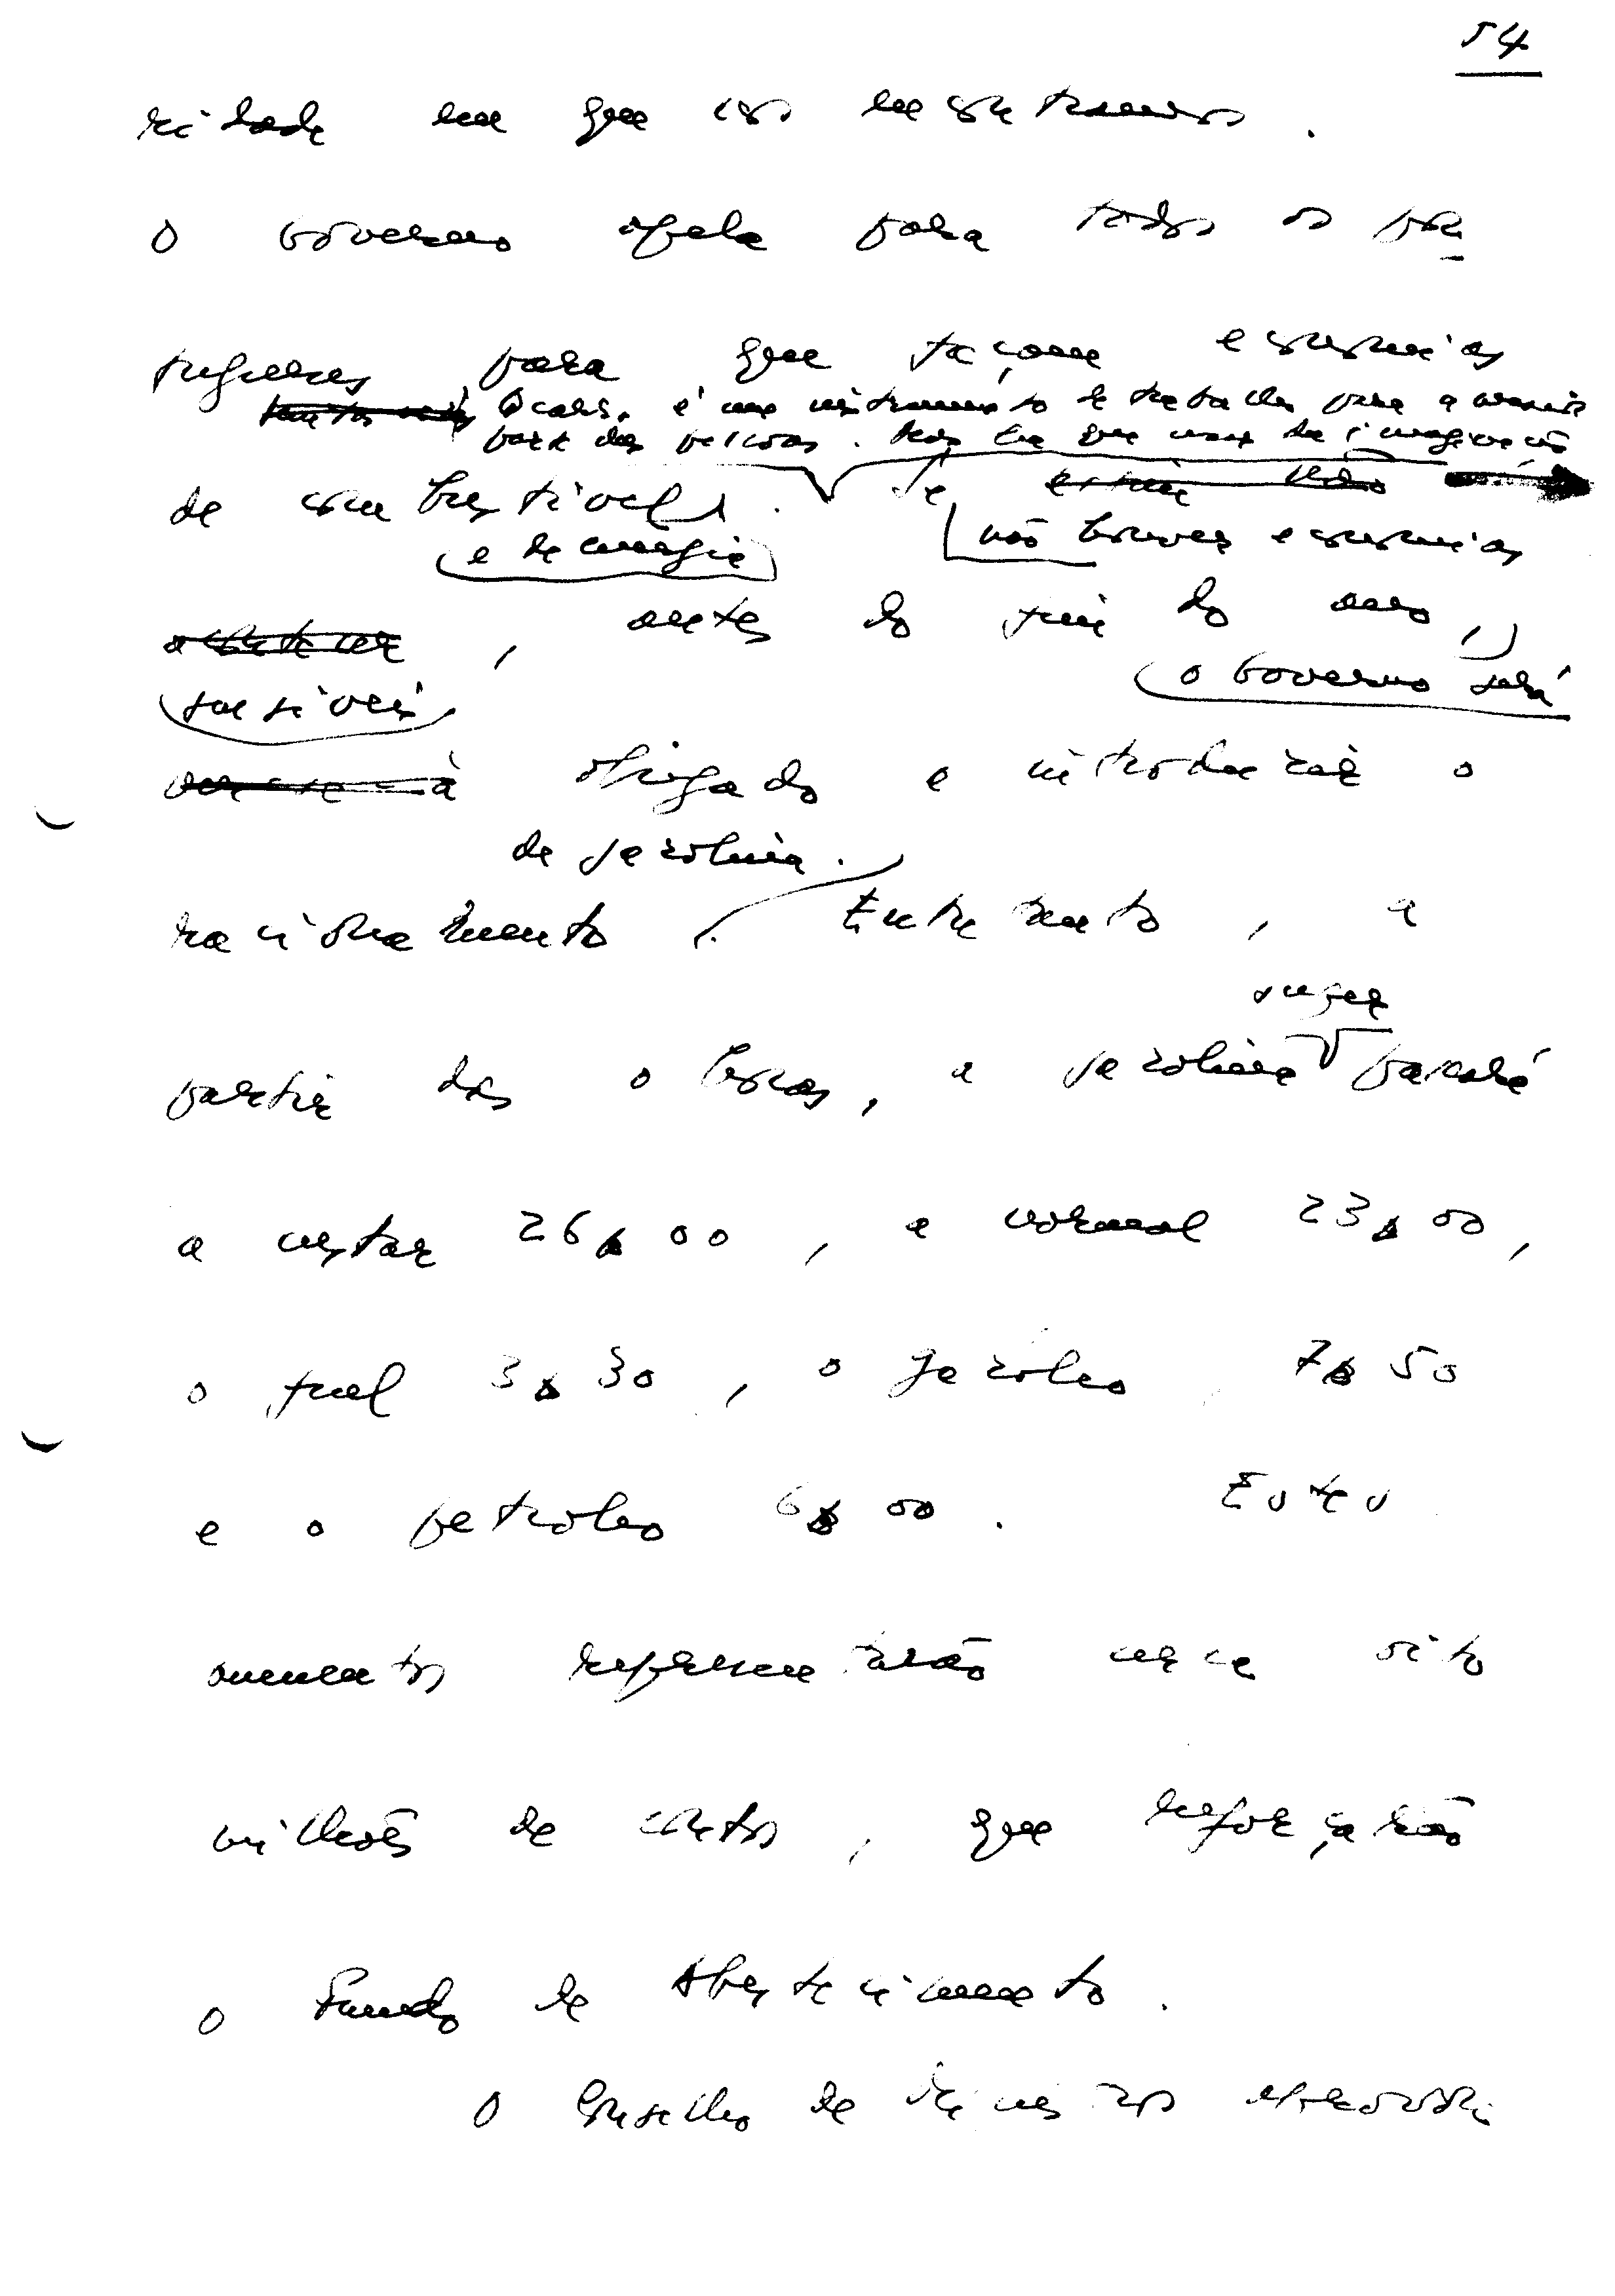 54
ridade em que nos encontramos.
O Governo apela para todos os por-
tugueses para que façam economias
O carro é um instrumento de trabalho para a maior
parte das pessoas. Mas há que usar da imaginação
de combustível. Se
e de energia
não houver economias
, antes do fim do ano,
o Governo será
sensíveis,
obrigado a introduzir o
de gasolina.
racionamento. Entretanto, a
partir das 0 horas, a gasolina passará
super
a custar 26$00, a normal 23$00,
o fuel 3$30, o gasóleo 7$50
e o petróleo 6$00. Estes
aumentos representarão cerca oito
milhões de contos, que reforçarão
o Fundo de Abastecimento.
O Conselho de Ministros aprovou